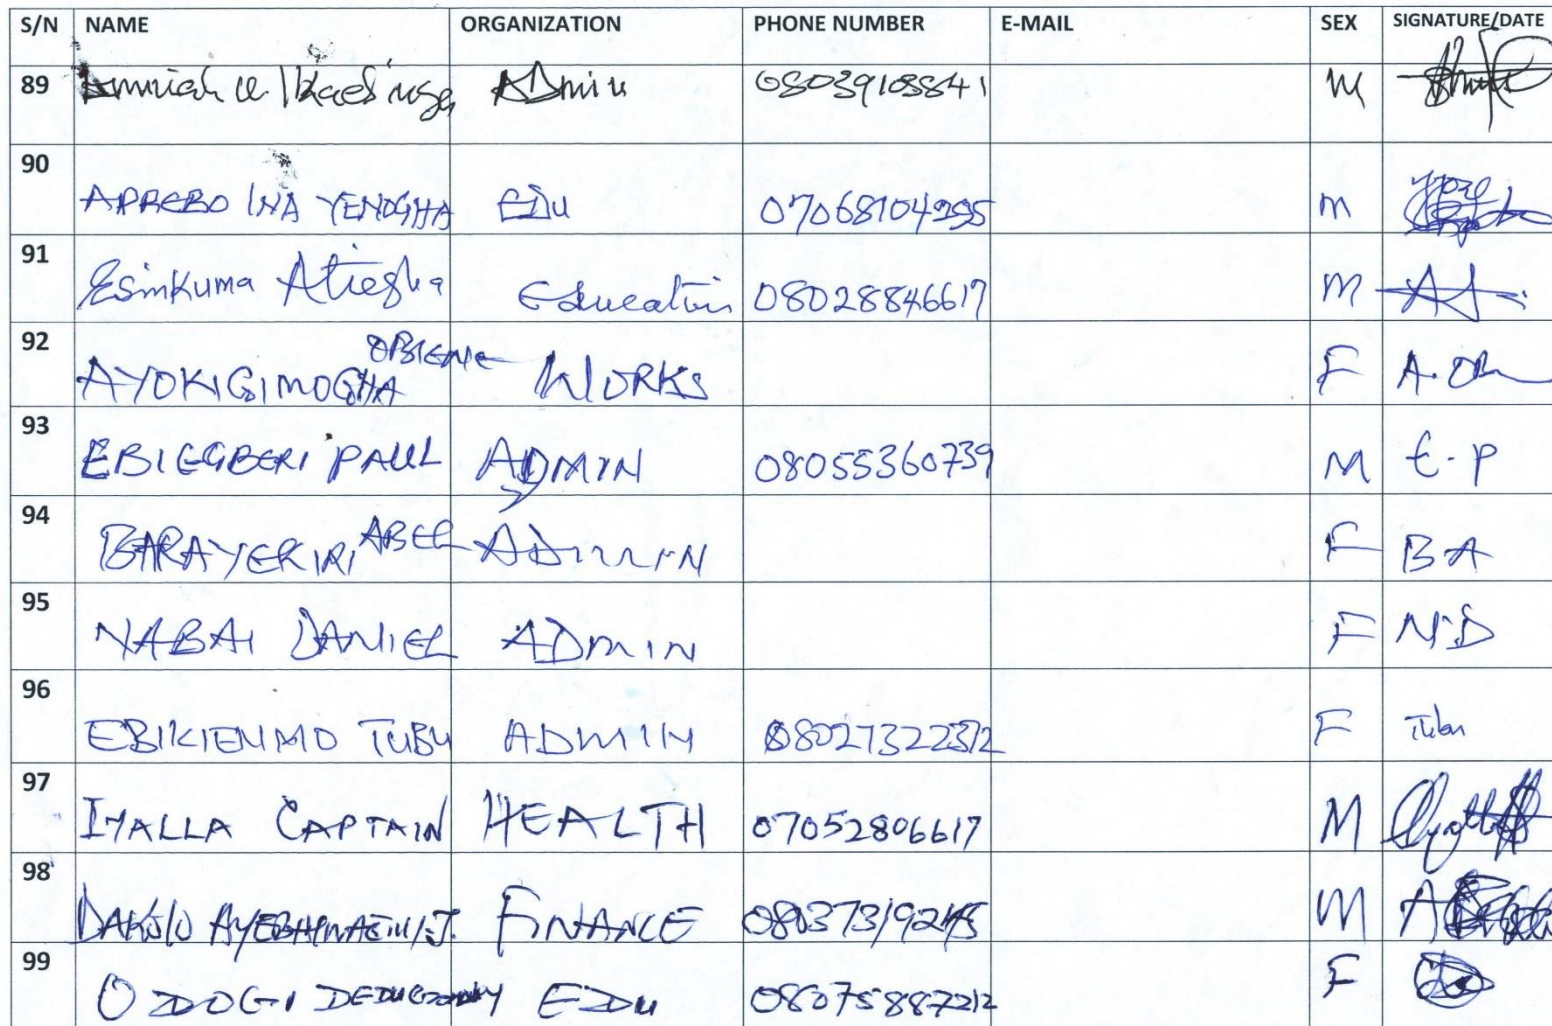 S/N NAME ORGANIZATION PHONE NUMBER E-MAIL SEX SIGNATURE/DATE
89 ADmin 08039108841 M
90 APREBO INA YENOGHA EDU 07068104295 M
91 Esinkuma Atiegha Education 08028846617 M
92 AYOKIGIMOGHA OBIENE WORKS F A.
93 EBIEGBERI PAUL ADMIN 08055360739 M E-P
94 BARAYERIRI ABEL ADMIN F BA
95 NABAI DANIEL ADMIN F N.D
96 EBIKIENMO TUBU ADMIN 08027322372 F Tubu
97 IYALLA CAPTAIN HEALTH 07052806617 M
98 DAKOLO FINANCE M
99 ODOGI EDU 08075887212 F